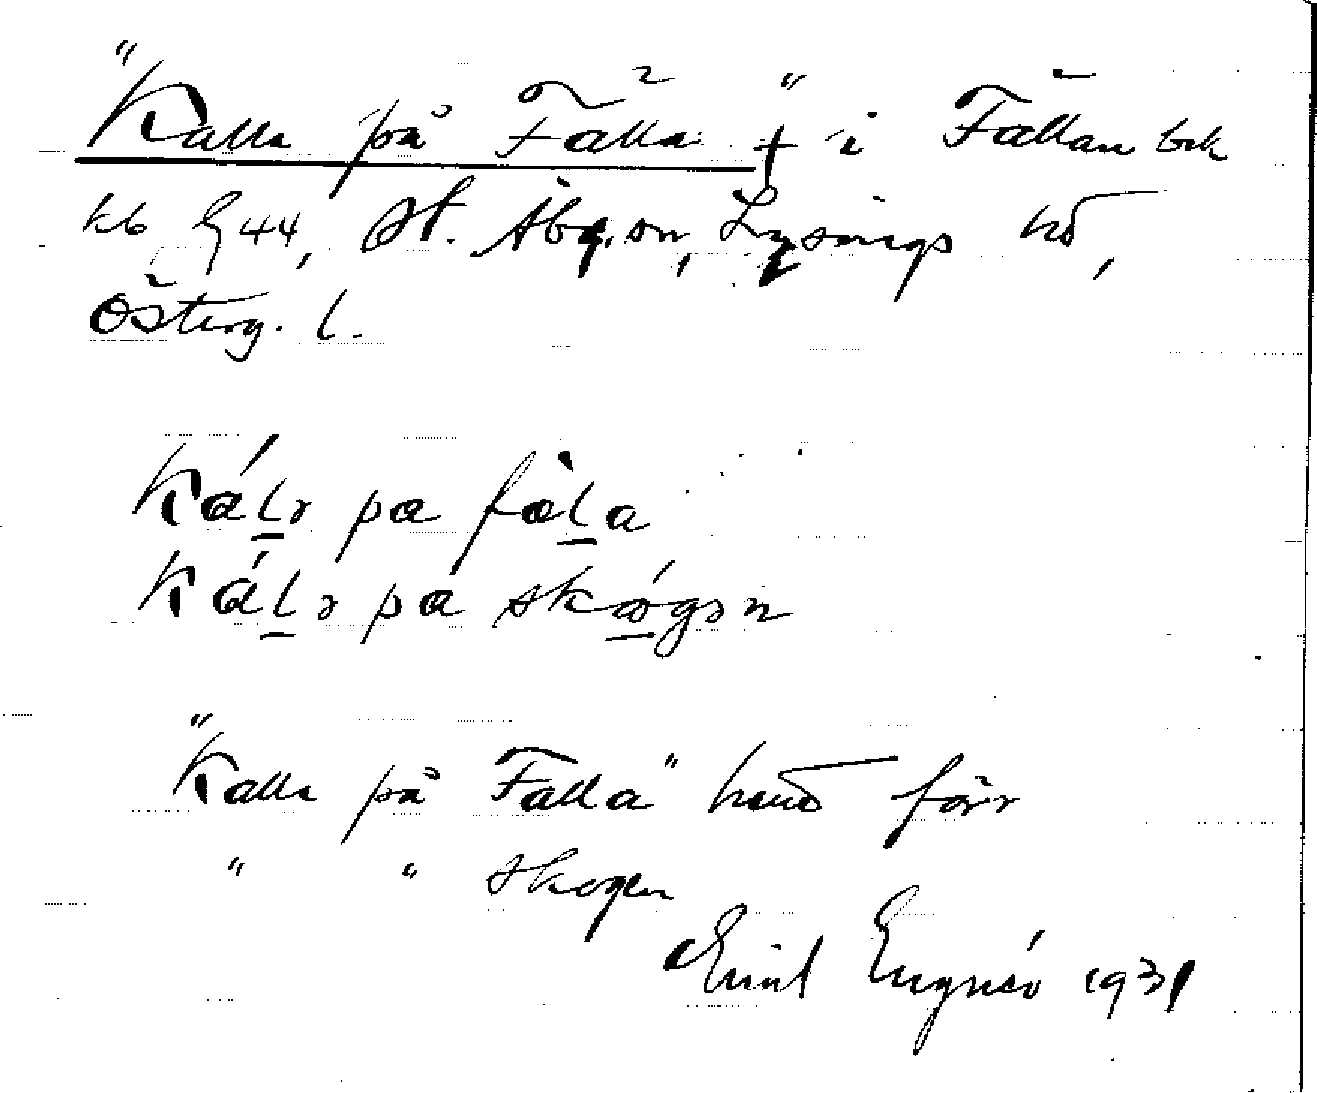 "Kalla på Fälla" † i Fällan bek
kb G 44, St. Åby sn, Lysings hd,
Österg. l.
Kálr pa fæla
Kálr pa skógən
"Kalla på Falla" hmd förr
" " skogen
Emil Engnér 1931